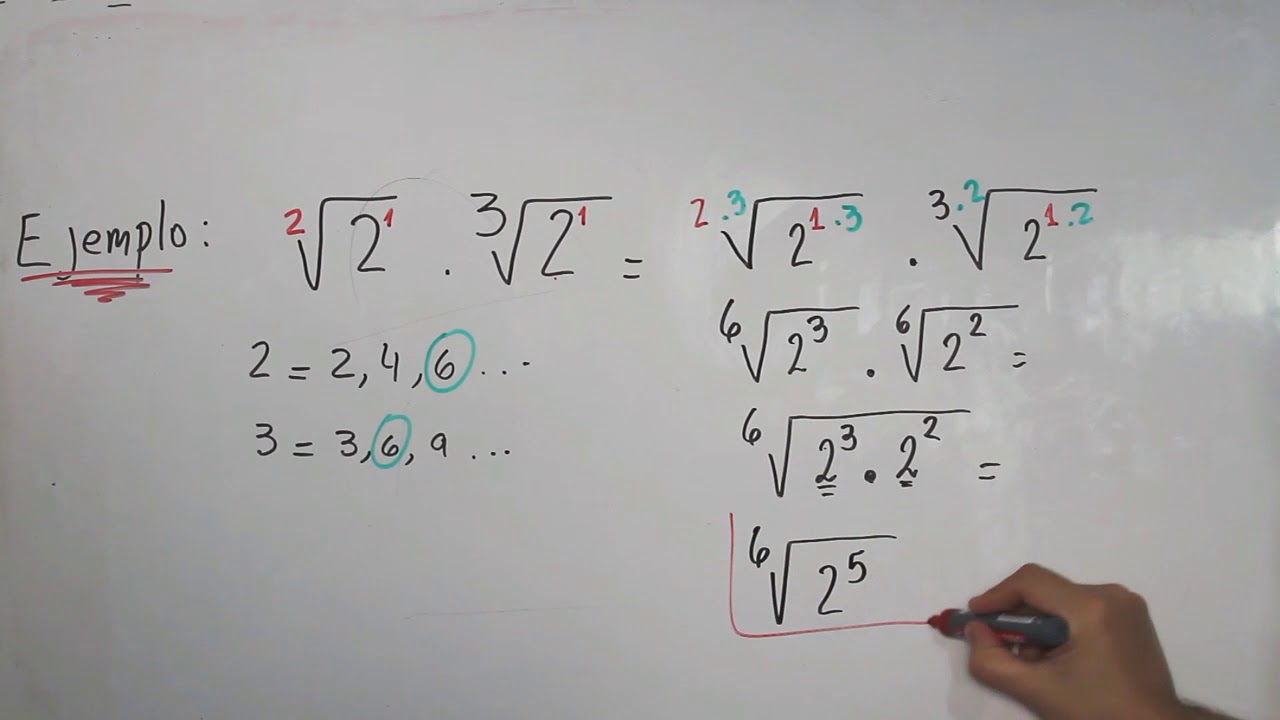 Ejemplo: ²√2¹ . ³√2¹ = ²·³√2¹·³ . ³·²√2¹·²
2 = 2, 4, 6 ...
⁶√2³ . ⁶√2² =
3 = 3, 6, 9 ...
⁶√(2³ . 2²) =
⁶√2⁵